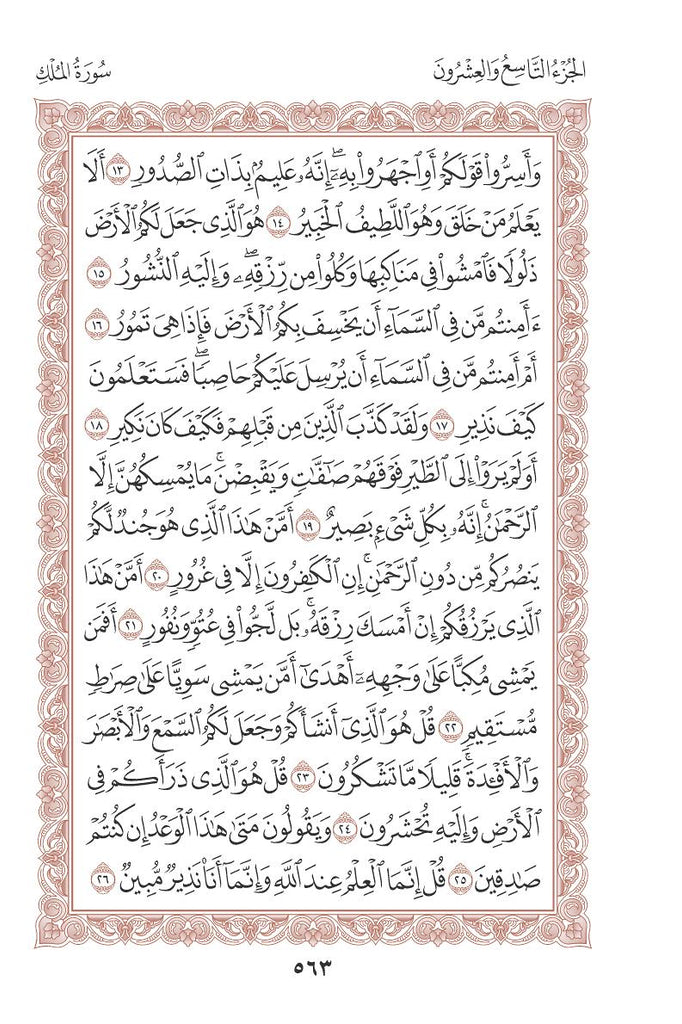 الجُزْءُ التَّاسِعُ وَالعِشْرُونَ
سُورَةُ المُلْكِ
وَأَسِرُّوا۟ قَوْلَكُمْ أَوِ ٱجْهَرُوا۟ بِهِۦٓ ۖ إِنَّهُۥ عَلِيمٌۢ بِذَاتِ ٱلصُّدُورِ ١٣ أَلَا
يَعْلَمُ مَنْ خَلَقَ وَهُوَ ٱللَّطِيفُ ٱلْخَبِيرُ ١٤ هُوَ ٱلَّذِى جَعَلَ لَكُمُ ٱلْأَرْضَ
ذَلُولًا فَٱمْشُوا۟ فِى مَنَاكِبِهَا وَكُلُوا۟ مِن رِّزْقِهِۦ ۖ وَإِلَيْهِ ٱلنُّشُورُ ١٥
ءَأَمِنتُم مَّن فِى ٱلسَّمَآءِ أَن يَخْسِفَ بِكُمُ ٱلْأَرْضَ فَإِذَا هِىَ تَمُورُ ١٦
أَمْ أَمِنتُم مَّن فِى ٱلسَّمَآءِ أَن يُرْسِلَ عَلَيْكُمْ حَاصِبًا ۖ فَسَتَعْلَمُونَ
كَيْفَ نَذِيرِ ١٧ وَلَقَدْ كَذَّبَ ٱلَّذِينَ مِن قَبْلِهِمْ فَكَيْفَ كَانَ نَكِيرِ ١٨
أَوَلَمْ يَرَوْا۟ إِلَى ٱلطَّيْرِ فَوْقَهُمْ صَٰٓفَّٰتٍ وَيَقْبِضْنَ ۚ مَا يُمْسِكُهُنَّ إِلَّا
ٱلرَّحْمَٰنُ ۚ إِنَّهُۥ بِكُلِّ شَىْءٍۭ بَصِيرٌ ١٩ أَمَّنْ هَٰذَا ٱلَّذِى هُوَ جُندٌ لَّكُمْ
يَنصُرُكُم مِّن دُونِ ٱلرَّحْمَٰنِ ۚ إِنِ ٱلْكَٰفِرُونَ إِلَّا فِى غُرُورٍ ٢٠ أَمَّنْ هَٰذَا
ٱلَّذِى يَرْزُقُكُمْ إِنْ أَمْسَكَ رِزْقَهُۥ ۚ بَل لَّجُّوا۟ فِى عُتُوٍّ وَنُفُورٍ ٢١ أَفَمَن
يَمْشِى مُكِبًّا عَلَىٰ وَجْهِهِۦٓ أَهْدَىٰٓ أَمَّن يَمْشِى سَوِيًّا عَلَىٰ صِرَٰطٍ
مُّسْتَقِيمٍ ٢٢ قُلْ هُوَ ٱلَّذِىٓ أَنشَأَكُمْ وَجَعَلَ لَكُمُ ٱلسَّمْعَ وَٱلْأَبْصَٰرَ
وَٱلْأَفْـِٔدَةَ ۖ قَلِيلًا مَّا تَشْكُرُونَ ٢٣ قُلْ هُوَ ٱلَّذِى ذَرَأَكُمْ فِى
ٱلْأَرْضِ وَإِلَيْهِ تُحْشَرُونَ ٢٤ وَيَقُولُونَ مَتَىٰ هَٰذَا ٱلْوَعْدُ إِن كُنتُمْ
صَٰدِقِينَ ٢٥ قُلْ إِنَّمَا ٱلْعِلْمُ عِندَ ٱللَّهِ وَإِنَّمَآ أَنَا۠ نَذِيرٌ مُّبِينٌ ٢٦
٥٦٣